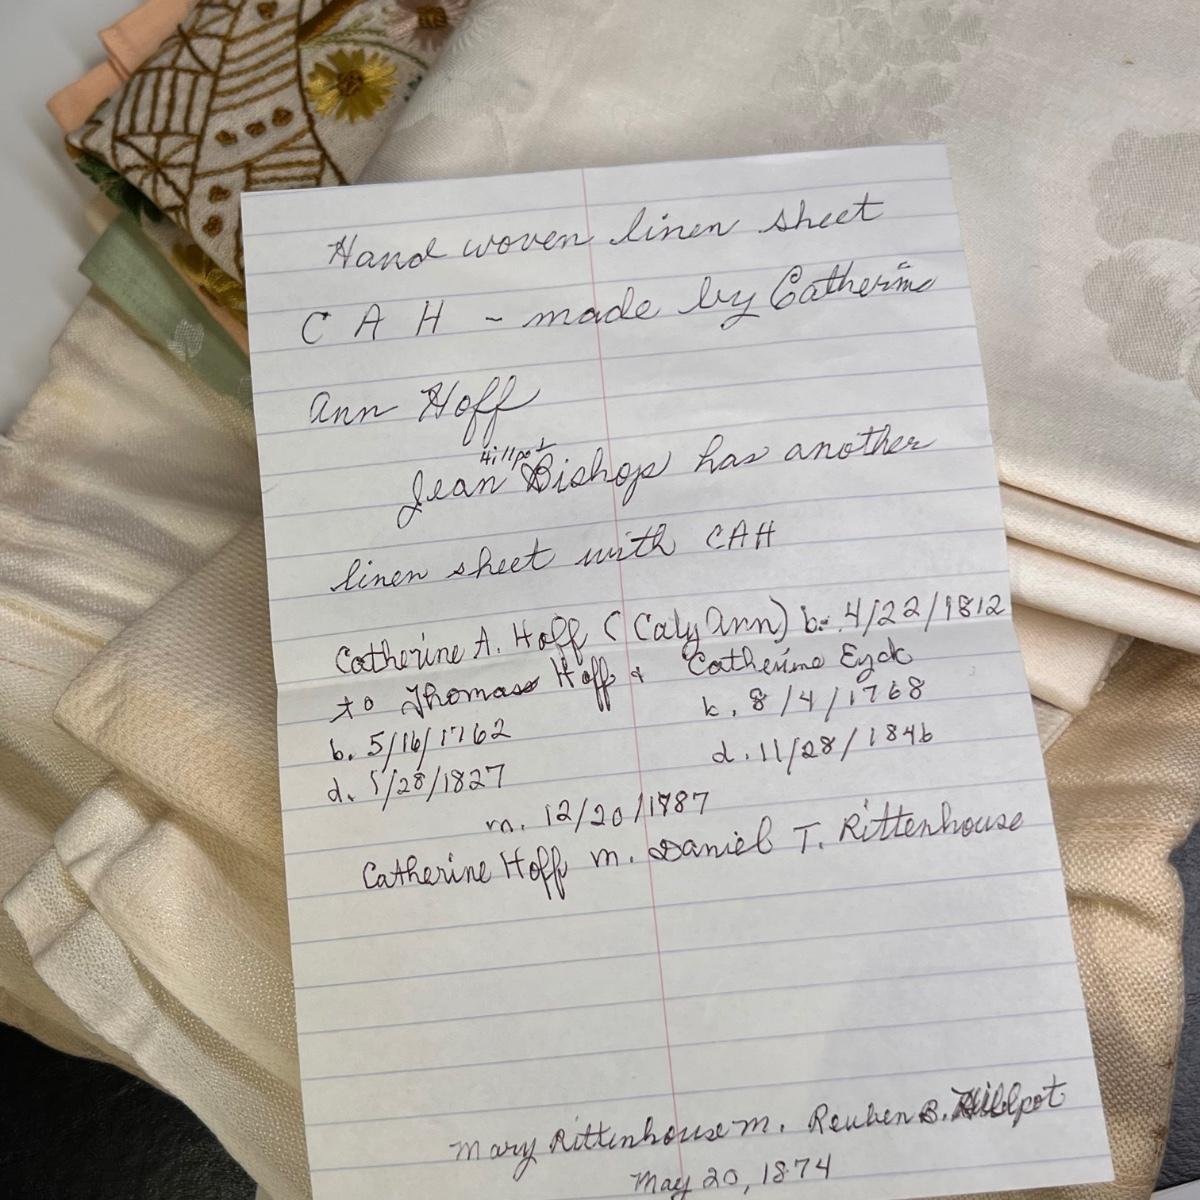 Hand woven linen sheet
C A H - made by Catherine
Ann Hoff
Hillpot
Jean Bishop has another
linen sheet with CAH
Catherine A. Hoff (Caty Ann) b. 4/22/1812
to Thomas Hoff & Catherine Eyck
b. 5/16/1762 b. 8/4/1768
d. 5/28/1827 d. 11/28/1846
m. 12/20/1787
Catherine Hoff m. Daniel T. Rittenhouse
Mary Rittenhouse m. Reuben B. Hillpot
May 20, 1874